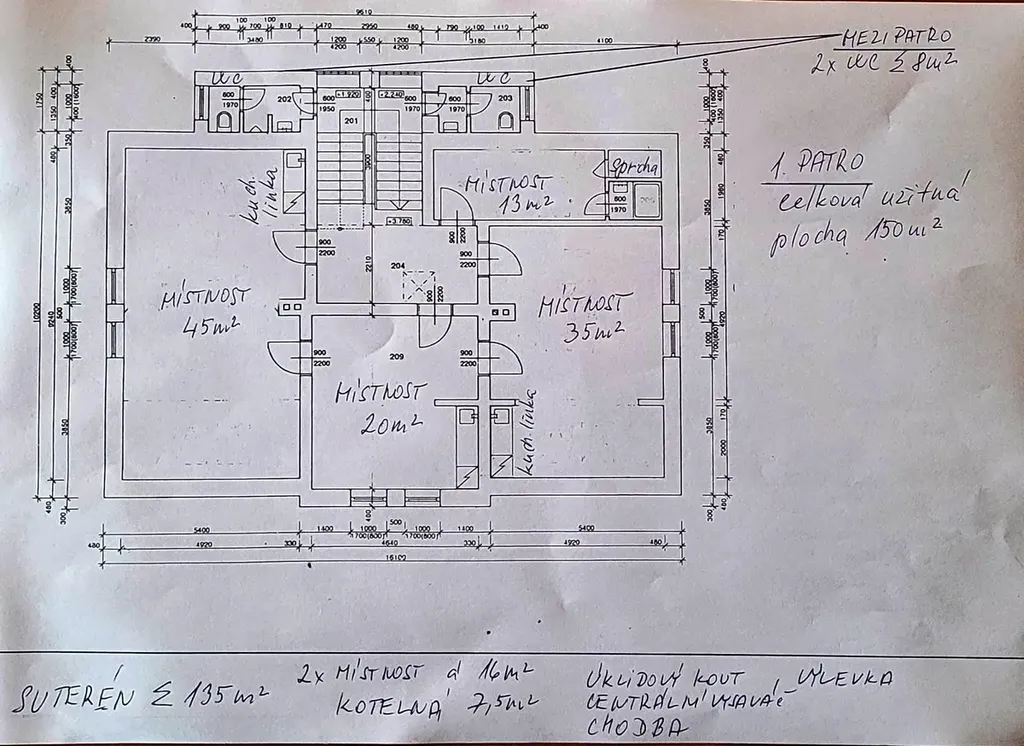 9610
400 900 100 700 100 810 470 2950 480 790 100 1410 400
2390 3480 1200 550 1200 3180 4100
4200 4200
MEZIPATRO
2x WC Σ 8m²
WC WC
+1.920 +2.240
600 202 600 600 203
1970 1950 1970
201
1. PATRO
celková užitná
plocha 150m²
kuch.
linka
MÍSTNOST
13m²
sprcha
600
1970
3900
+3.780
900
2200
900
2200
900
2200
2210
204
900
2200
MÍSTNOST
45m²
MÍSTNOST
35m²
900
2200
209
900
2200
MÍSTNOST
20m²
kuch. linka
1750 400
1350 1000 (1600)
400
480 350
3850
10200 9240 500 1000 1700(800)
1000 1700(800)
3850
480
300
400
1000 (1600)
400
350 480
3850 1980
170
1000 1700(800)
500 4920
1000 1700(800)
170
3850
2000
480
300
480
5400 1400 1000 500 1000 1400 5400
1700(800) 1700(800)
480 4920 330 4640 330 4920 480
16100
SUTERÉN Σ 135m²
2x MÍSTNOST á 16m²
KOTELNA 7,5m²
ÚKLIDOVÝ KOUT, VÝLEVKA
CENTRÁLNÍ VYSAVAČ
CHODBA